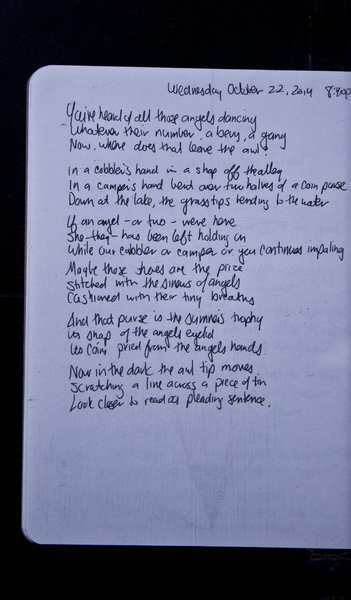 Wednesday October 22, 2014 8:40p
You've heard of all those angels dancing
Whatever their number, a bevy, a gang
Now, where does that leave the awl
In a cobbler's hand in a shop off the alley
In a camper's hand bent over two halves of a coin purse
Down at the lake, the grass tips tending to the water
If an angel - or two - were here
She - they - has been left holding on
While our cobbler or camper or you continues impaling
Maybe those shoes are the price
Stitched with the sinews of angels
Cushioned with their tiny breaths
And that purse is the summer's trophy
Its snap of the angel's eyelid
Its coin pried from the angel's hands
Now in the dark the awl tip moves
Scratching a line across a piece of tin
Look closer to read its pleading sentence.